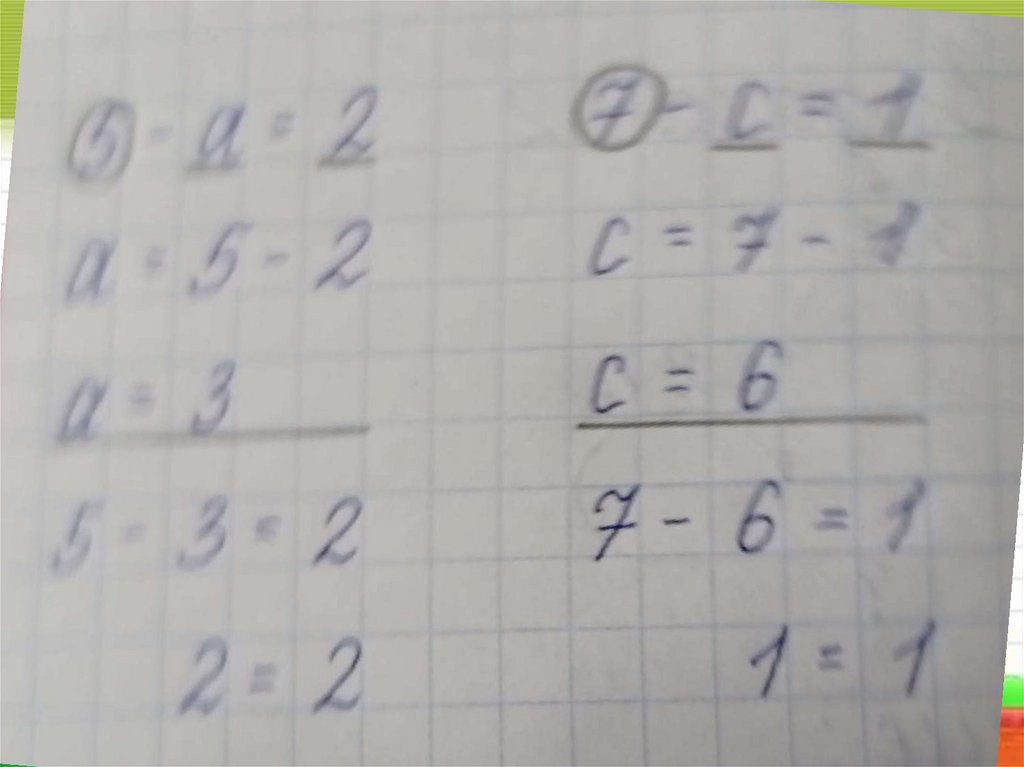 5 - a = 2
a = 5 - 2
a = 3
5 - 3 = 2
2 = 2
7 - c = 1
c = 7 - 1
c = 6
7 - 6 = 1
1 = 1